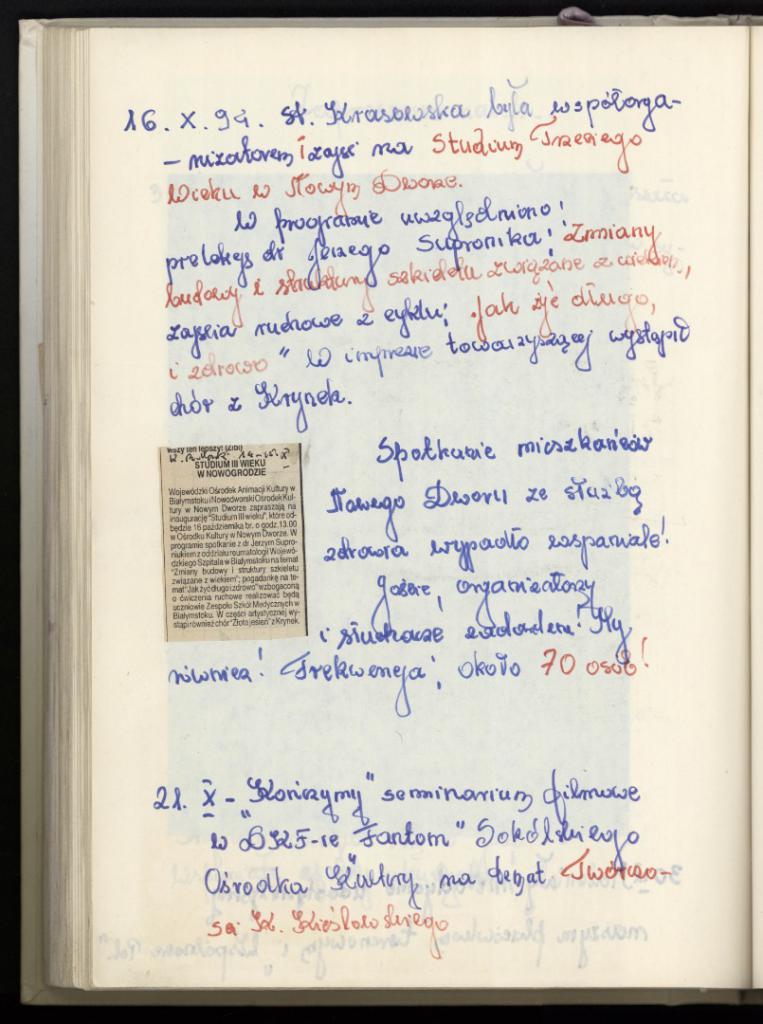 16. X. 94. st. Krasowska była współorga-
- nizatorem zajęć na Studium Trzeciego
Wieku w Nowym Dworze.
W programie uwzględniono:
prelekcję dr Jerzego Supronika: Zmiany
budowy i struktury szkieletu związane z wiekiem,
zajęcia ruchowe z cyklu: Jak żyć długo,
i zdrowo" W imprezie towarzyszącej wystąpił
chór z Krynek.
wszy ten lepszy! (zibi)
14-16. X
STUDIUM III WIEKU
W NOWOGRODZIE
Wojewódzki Ośrodek Animacji Kultury w
Białymstoku i Nowodworski Ośrodek Kul-
tury w Nowym Dworze zapraszają na
inaugurację "Studium III wieku", które od-
będzie 16 października br. o godz. 13.00
w Ośrodku Kultury w Nowym Dworze. W
programie spotkanie z dr Jerzym Supro-
niukiem z oddziału reumatologii Wojewó-
dzkiego Szpitala w Białymstoku na temat
"Zmiany budowy i struktury szkieletu
związane z wiekiem"; pogadankę na te-
mat "Jak żyć długo i zdrowo" wzbogaconą
o ćwiczenia ruchowe realizować będą
uczniowie Zespołu Szkół Medycznych w
Białymstoku. W części artystycznej wy-
stąpi również chór "Złota jesień" z Krynek.
Spotkanie mieszkańców
Nowego Dworu ze służbą
zdrowia wypadło wspaniale!
Goście, organizatorzy
i słuchacze zadowoleni! My
również! Frekwencja: około 70 osób!
21. X - "Kończymy" seminarium filmowe
w "DKF-ie Fantom" Sokólskiego
Ośrodka Kultury na temat Twórczo-
ści K. Kieślowskiego